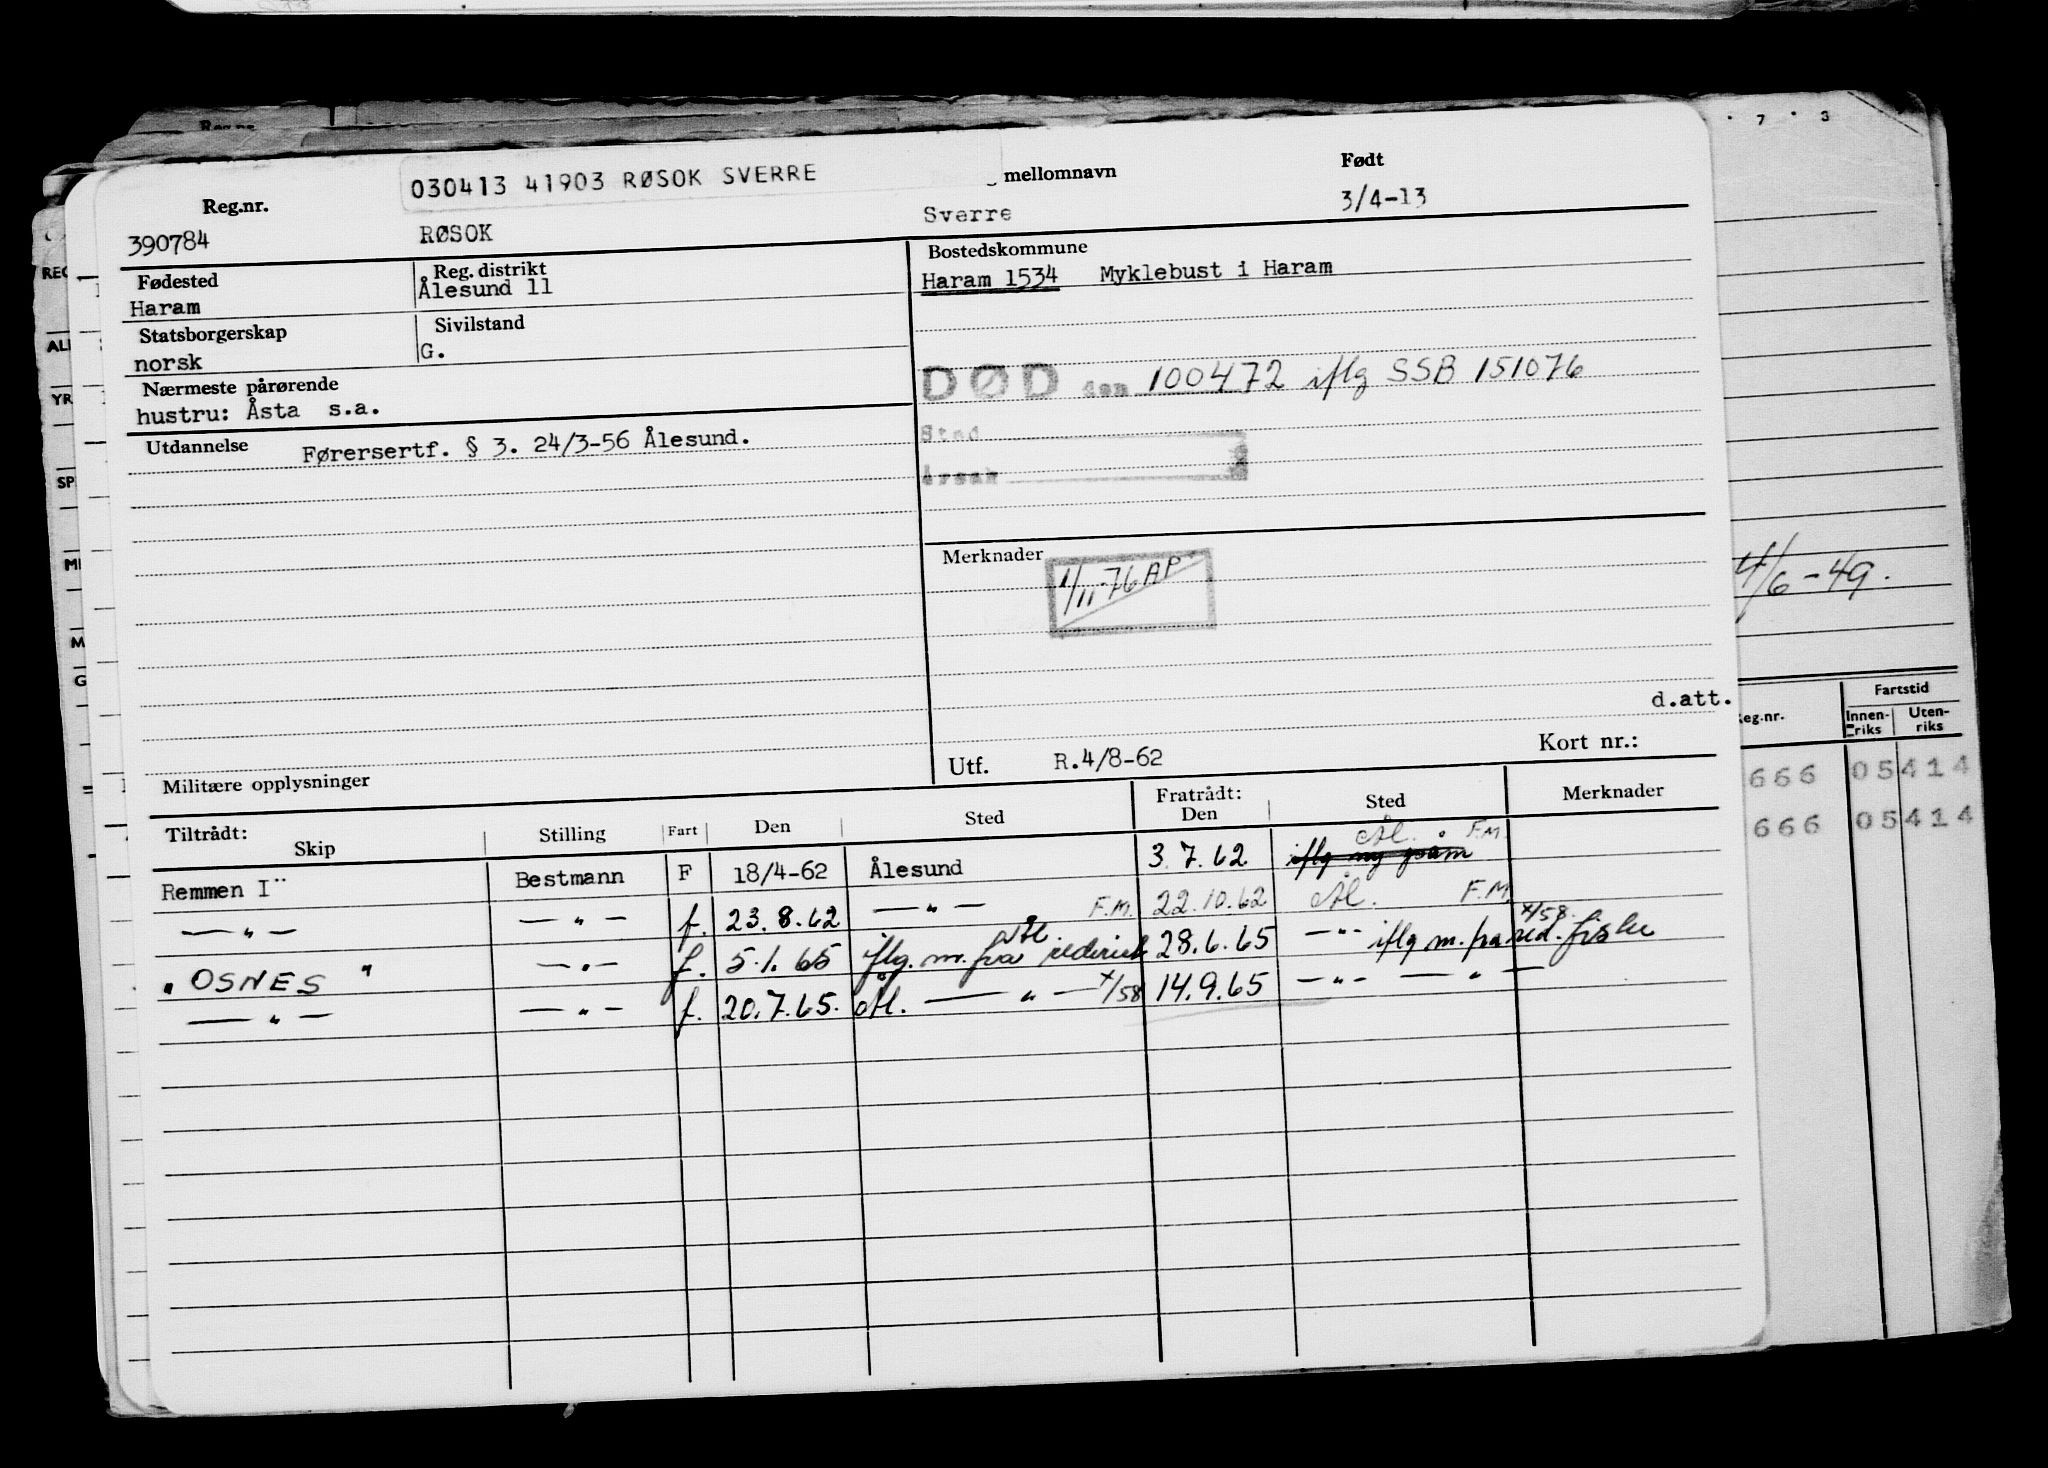 Reg.nr.
030413 41903 RØSOK SVERRE
mellomnavn
Født
390784
RØSOK
Sverre
3/4-13
Fødested
Haram
Reg. distrikt
Ålesund 11
Bostedskommune
Haram 1534 Myklebust i Haram
Statsborgerskap
norsk
Sivilstand
G.
Nærmeste pårørende
hustru: Åsta s.a.
DØD den 100472 iflg SSB 151076
Sted
Årsak
Utdannelse
Førersertf. § 3. 24/3-56 Ålesund.
Merknader
1/11-76 AP
d.att.
Militære opplysninger
Utf. R.4/8-62
Kort nr.:
Tiltrådt:
Skip
Stilling
Fart
Den
Sted
Fratrådt:
Den
Sted
Merknader
Remmen I" Bestmann F 18/4-62 Ålesund 3.7.62 Ål. F.M.
— " — — " — f. 23.8.62 — " — F.M. 22.10.62 Ål. F.M.
"OSNES" — " — f. 5.1.65 Ål. iflg. m. fra rederiet 28.6.65 — " — iflg m. fra red. 4/58. fiske
— " — — " — f. 20.7.65. Ål. — " — 4/58 14.9.65 — " — — " —
7 3
4/6-49.
Reg.nr.
Fartstid
Innenriks
Utenriks
666 05414
666 05414
REG
AL
YR
SP
M
G